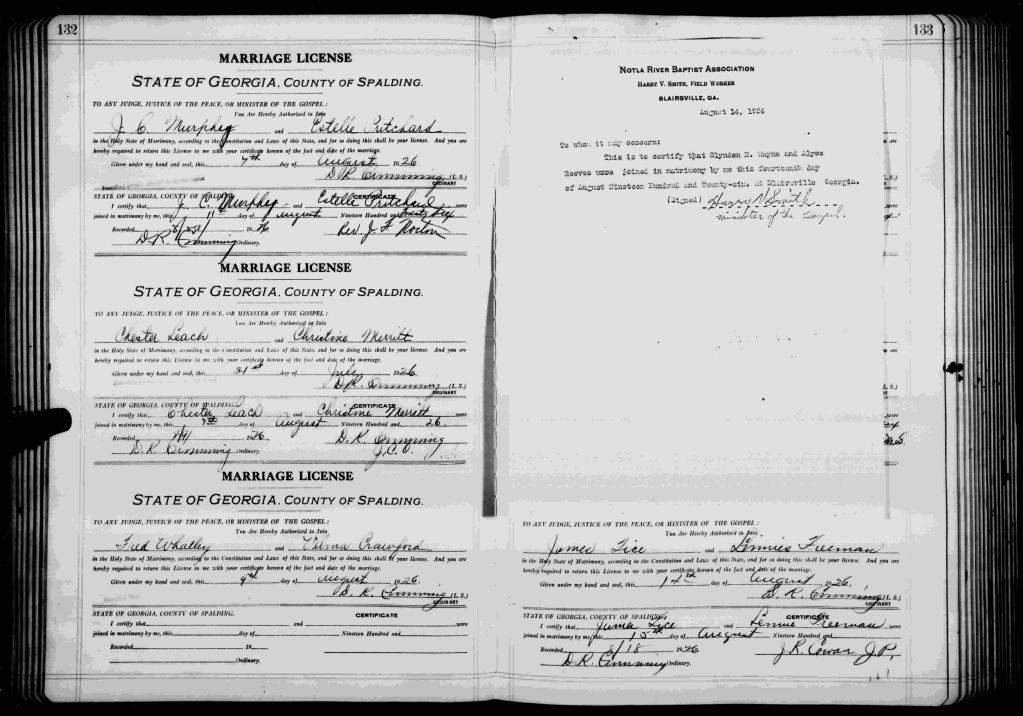 132
MARRIAGE LICENSE
STATE OF GEORGIA, COUNTY OF SPALDING.
TO ANY JUDGE, JUSTICE OF THE PEACE, OR MINISTER OF THE GOSPEL:
You Are Hereby Authorized to Join
J. C. Murphey and Estelle Pritchard
in the Holy State of Matrimony, according to the Constitution and Laws of this State, and for so doing this shall be your license. And you are
hereby required to return this License to me with your certificate hereon of the fact and date of the marriage.
Given under my hand and seal, this 7th day of August 1926
D. R. Cumming (L. S.)
ORDINARY
STATE OF GEORGIA, COUNTY OF SPALDING. CERTIFICATE
I certify that J. C. Murphey and Estelle Pritchard were
joined in matrimony by me, this 11th day of August Nineteen Hundred and Twenty Six
Recorded 1926 Rev. J. F.
D. R. Cumming Ordinary.
MARRIAGE LICENSE
STATE OF GEORGIA, COUNTY OF SPALDING.
TO ANY JUDGE, JUSTICE OF THE PEACE, OR MINISTER OF THE GOSPEL:
You Are Hereby Authorized to Join
Chester Leach and Christine Merritt
in the Holy State of Matrimony, according to the Constitution and Laws of this State, and for so doing this shall be your license. And you are
hereby required to return this License to me with your certificate hereon of the fact and date of the marriage.
Given under my hand and seal, this 31st day of July 1926
D. R. Cumming (L. S.)
ORDINARY
STATE OF GEORGIA, COUNTY OF SPALDING. CERTIFICATE
I certify that Chester Leach and Christine Merritt were
joined in matrimony by me, this 7th day of August Nineteen Hundred and 26
Recorded 1926 D. R. Cumming
D. R. Cumming Ordinary.
MARRIAGE LICENSE
STATE OF GEORGIA, COUNTY OF SPALDING.
TO ANY JUDGE, JUSTICE OF THE PEACE, OR MINISTER OF THE GOSPEL:
You Are Hereby Authorized to Join
Fred Whatley and Velma Crawford
in the Holy State of Matrimony, according to the Constitution and Laws of this State, and for so doing this shall be your license. And you are
hereby required to return this License to me with your certificate hereon of the fact and date of the marriage.
Given under my hand and seal, this 9th day of August 1926
D. R. Cumming (L. S.)
ORDINARY
STATE OF GEORGIA, COUNTY OF SPALDING. CERTIFICATE
I certify that and were
joined in matrimony by me, this day of Nineteen Hundred and
Recorded 19
Ordinary.
133
NOTLA RIVER BAPTIST ASSOCIATION
HARRY V. SMITH, FIELD WORKER
BLAIRSVILLE, GA.
August 14, 1926
To whom it may concern:
This is to certify that Glynden R. Wayne and Alyce
Reeves were joined in matrimony by me this fourteenth day
of August Nineteen Hundred and Twenty-six, at Blairsville Georgia.
(Signed) Harry V Smith
minister of the Gospel.
TO ANY JUDGE, JUSTICE OF THE PEACE, OR MINISTER OF THE GOSPEL:
You Are Hereby Authorized to Join
James Tice and Linnies Freeman
in the Holy State of Matrimony, according to the Constitution and Laws of this State, and for so doing this shall be your license. And you are
hereby required to return this License to me with your certificate hereon of the fact and date of the marriage.
Given under my hand and seal, this 14th day of August 1926.
D. R. Cumming (L. S.)
ORDINARY
STATE OF GEORGIA, COUNTY OF SPALDING. CERTIFICATE
I certify that James Tice and Lennie Freeman were
joined in matrimony by me, this 15th day of August Nineteen Hundred and
Recorded 8/18 1926 J. R. Cowan J. P.
D. R. Cumming Ordinary.